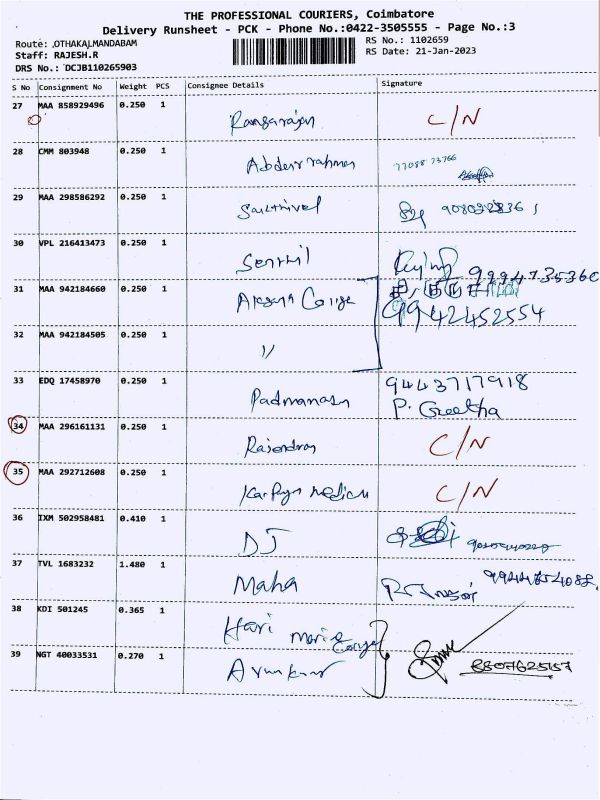 THE PROFESSIONAL COURIERS, Coimbatore
Delivery Runsheet - PCK - Phone No.:0422-3505555 - Page No.:3
Route: ,OTHAKALMANDABAM
Staff: RAJESH.R
DRS No.: DCJB110265903
RS No.: 1102659
RS Date: 21-Jan-2023
S No Consignment No Weight PCS Consignee Details Signature
27 MAA 858929496 0.250 1 Rangarajan C/N
28 CMM 803948 0.250 1 Abdenrrahman 77088 73766
29 MAA 298586292 0.250 1 Sakthivel
30 VPL 216413473 0.250 1 Senthil 9994735360
31 MAA 942184660 0.250 1 9942452554
32 MAA 942184505 0.250 1 "
33 EDQ 17458970 0.250 1 9443717918
P. Geetha
34 MAA 296161131 0.250 1 Rajendran C/N
35 MAA 292712608 0.250 1 C/N
36 IXM 502958481 0.410 1 DJ
37 TVL 1683232 1.480 1 Maha
38 KDI 501245 0.365 1 Hari
39 NGT 40033531 0.270 1 Arunkumar 8807625157